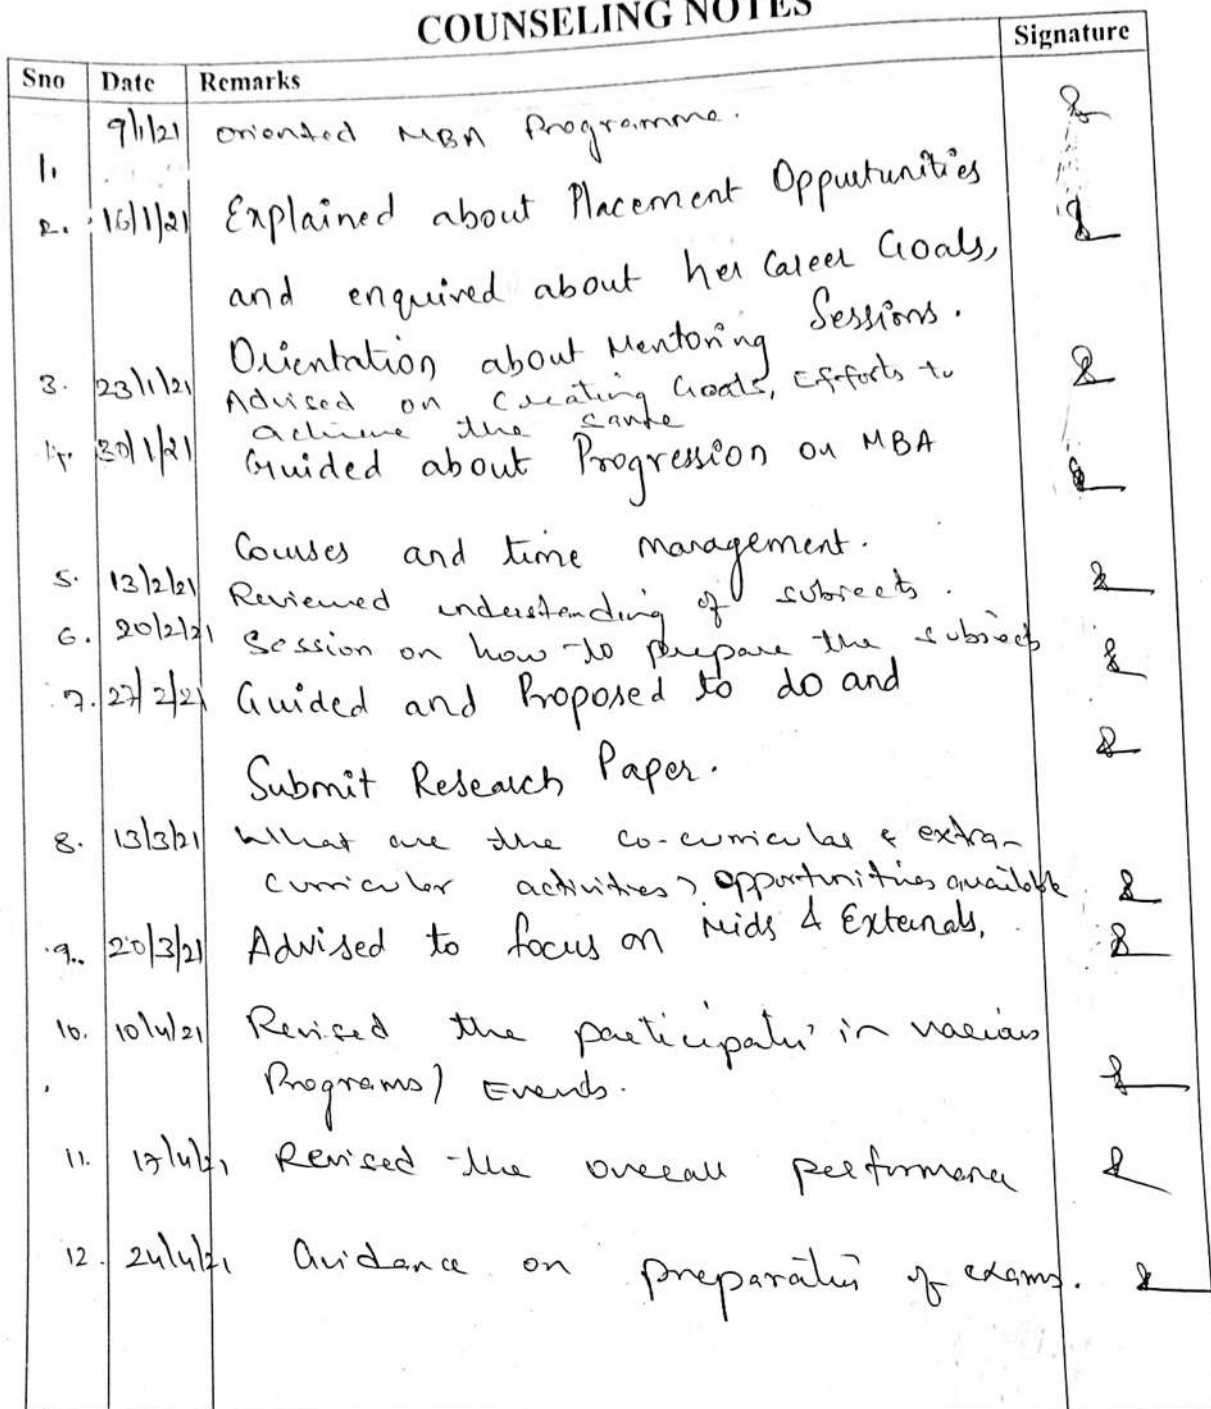 COUNSELING NOTES
Sno Date Remarks Signature
1. 9/1/21 oriented MBA Programme.
2. 16/1/21 Explained about Placement Oppurtunities
and enquired about her Career Goals,
Orientation about Mentoring Sessions.
3. 23/1/21 Advised on Creating Goals, Efforts to
achieve the same
4. 30/1/21 Guided about Progression on MBA
Courses and time management.
5. 13/2/21 Reviewed understanding of subjects.
6. 20/2/21 Session on how to prepare the subject
7. 27/2/21 Guided and Proposed to do and
Submit Research Paper.
8. 13/3/21 What are the co-curricular & extra-
curricular activities, opportunities available
9. 20/3/21 Advised to focus on Mids & Externals.
10. 10/4/21 Revised the in various
Programs / Events.
11. 17/4/21 Revised the overall performance
12. 24/4/21 Guidance on of exams.